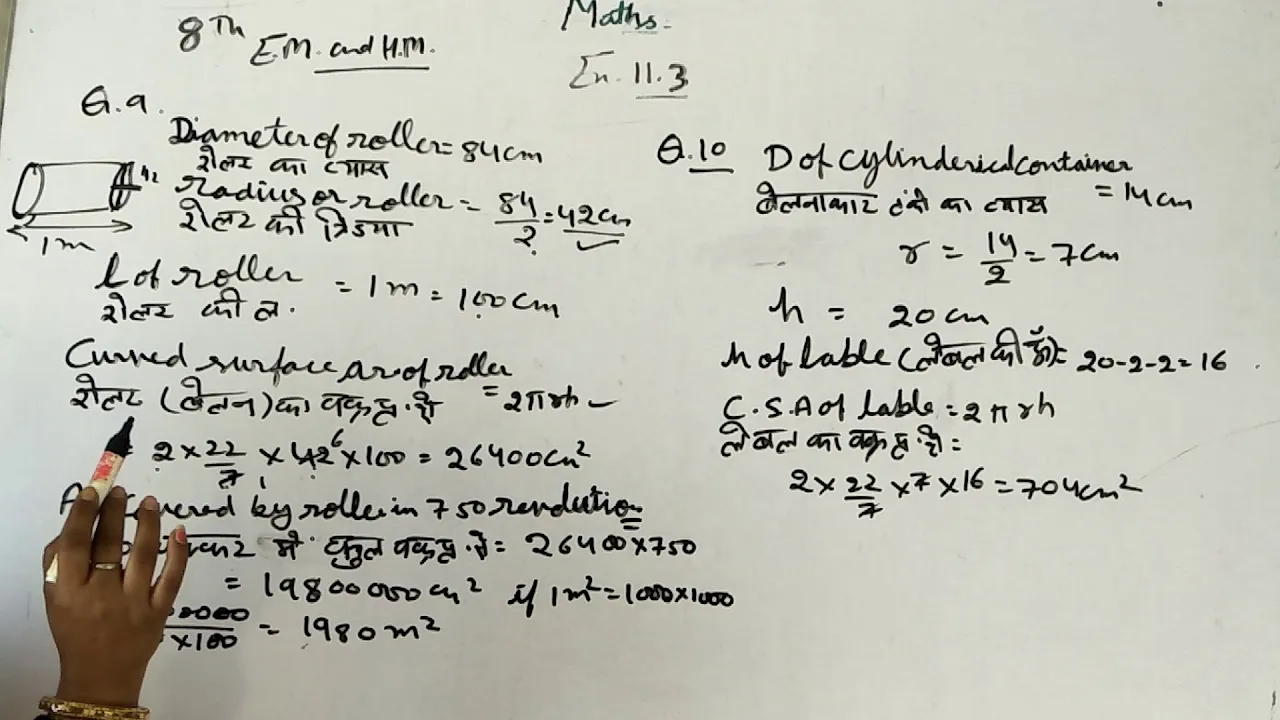 Maths.
8Th E.M. and H.M.
Ex. 11.3
Q.9.
Diameter of roller = 84cm
रोलर का व्यास
radius or roller = 84/2 = 42cm
रोलर की त्रिज्या
42
1m
l of roller = 1m = 100cm
रोलर की ल.
Curved surface ar of roller
रोलर (बेलन) का वक्र पृ. क्षे = 2πrh
= 2 × 22/7 × 42 6 × 100 = 26400cm²
covered by roller in 750 revolution
में कुल वक्र पृ. क्षे = 26400×750
= 19800000cm² if 1m² = 1000×1000
×100 = 1980m²
Q.10 D of cylinderical container
बेलनाकार टंकी का व्यास = 14cm
r = 14/2 = 7cm
h = 20cm
h of lable (लेबल की ऊँ) = 20-2-2=16
C.S.A of lable = 2πrh
लेबल का वक्र पृ. क्षे =
2 × 22/7 × 7 × 16 = 704cm²